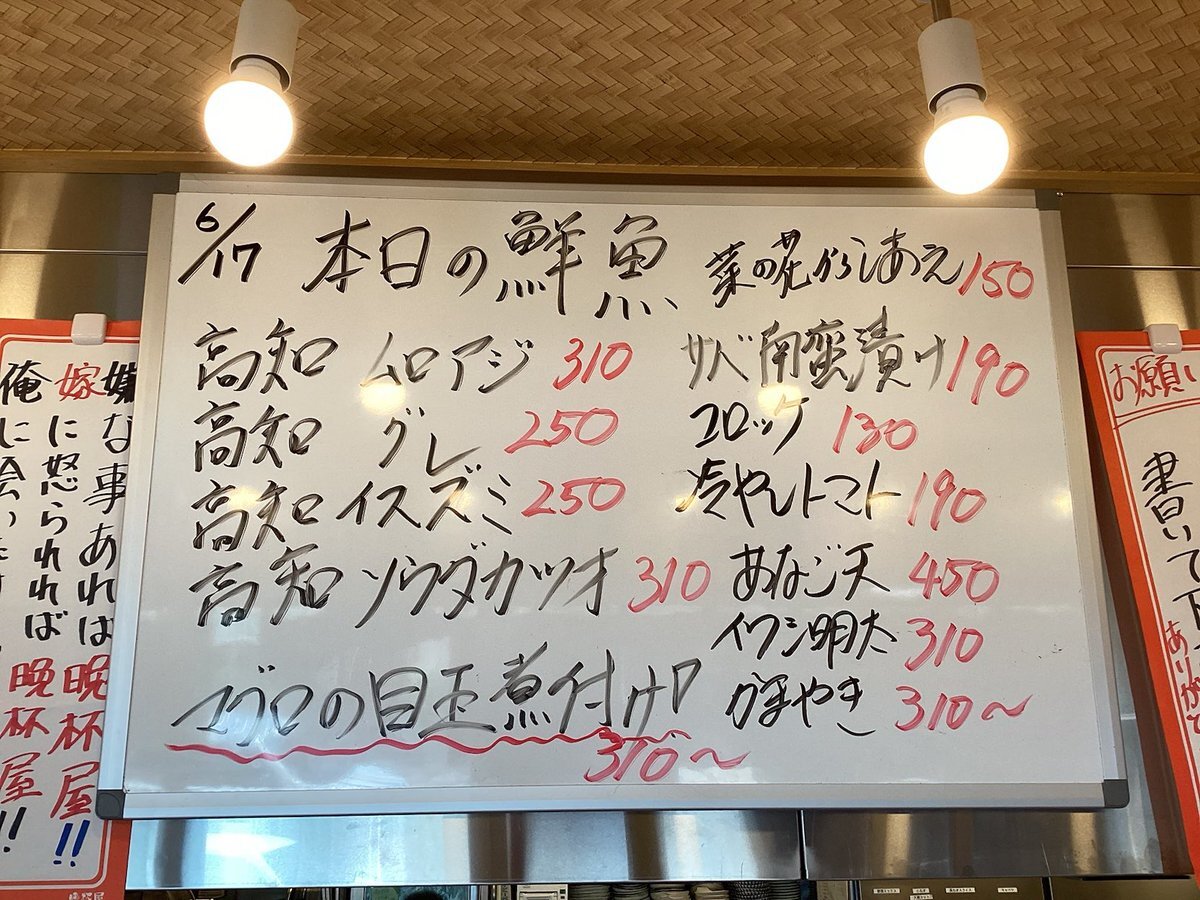 6/17 本日の鮮魚
高知 ムロアジ 310
高知 グレ 250
高知 イスズミ 250
高知 ソウダガツオ 310
マグロの目玉煮付け
310〜
菜の花からしあえ 150
サバ南蛮漬け 190
コロッケ 130
冷やしトマト 190
あなご天 450
イワシ明太 310
かまやき 310〜
嫌な事あれば晩杯屋!!
嫁に怒られれば晩杯屋!!
俺に会い
お願い
書いて下
ありがと